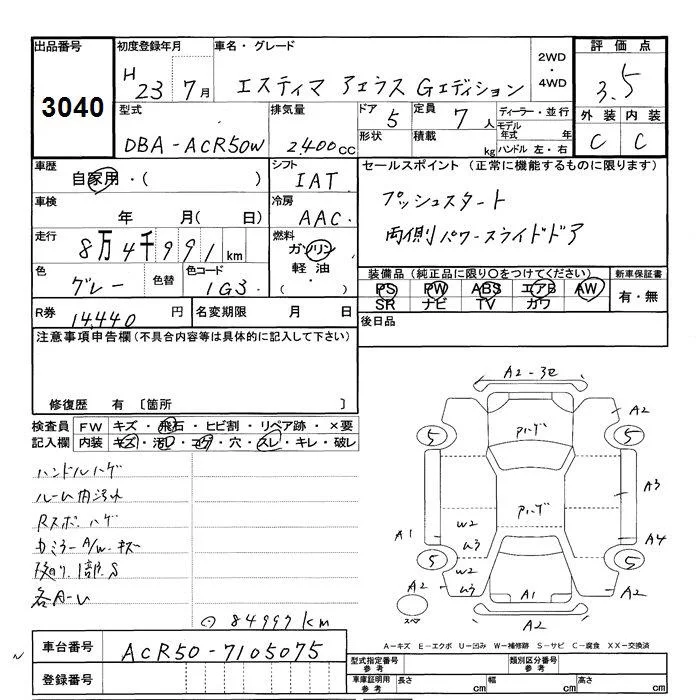 出品番号 初度登録年月 車名・グレード 2WD・4WD 評価点
3040 H23年7月 エスティマ アエラス Gエディション 3.5
型式 排気量 ドア 5 定員 7人 ディーラー・並行 外装 内装
DBA-ACR50W 2400cc 形状 積載 kg モデル年式 年 C C
ハンドル 左・右
車歴 シフト セールスポイント (正常に機能するものに限ります)
自家用・( ) IAT
車検 冷房 プッシュスタート
年 月(日) AAC 両側パワースライドドア
走行 燃料
8万4千991km ガソリン・軽油・( )
色 色替 色コード 装備品(純正品に限り○をつけてください) 新車保証書
グレー 1G3 PS PW ABS エアB AW 有・無
SR ナビ TV カワ
R券 14,440円 名変期限 月 日 後日品
注意事項申告欄(不具合内容等は具体的に記入して下さい)
修復歴 有 〔箇所 〕
検査員記入欄 FW キズ・飛石・ヒビ割・リペア跡・×要
内装 キズ・汚れ・コゲ・穴・スレ・キレ・破レ
ハンドルハゲ
ルーム内汚れ
Rスポ.ハゲ
カミラーA/W.キズ
各A-U
84997km
A2-3セ
A2
アハゲ
5
5
A3
アハゲ
A1
W2
ムラ
A4
5
5
W2
ムラ
A2
A1
A2
スペア
A2
A-キズ E-エクボ U-凹み W-補修跡 S-サビ C-腐食 XX-交換済
車台番号 ACR50-7105075 型式指定番号 類別区分番号
登録番号 車庫証明用参考 長さ cm 幅 cm 高さ cm